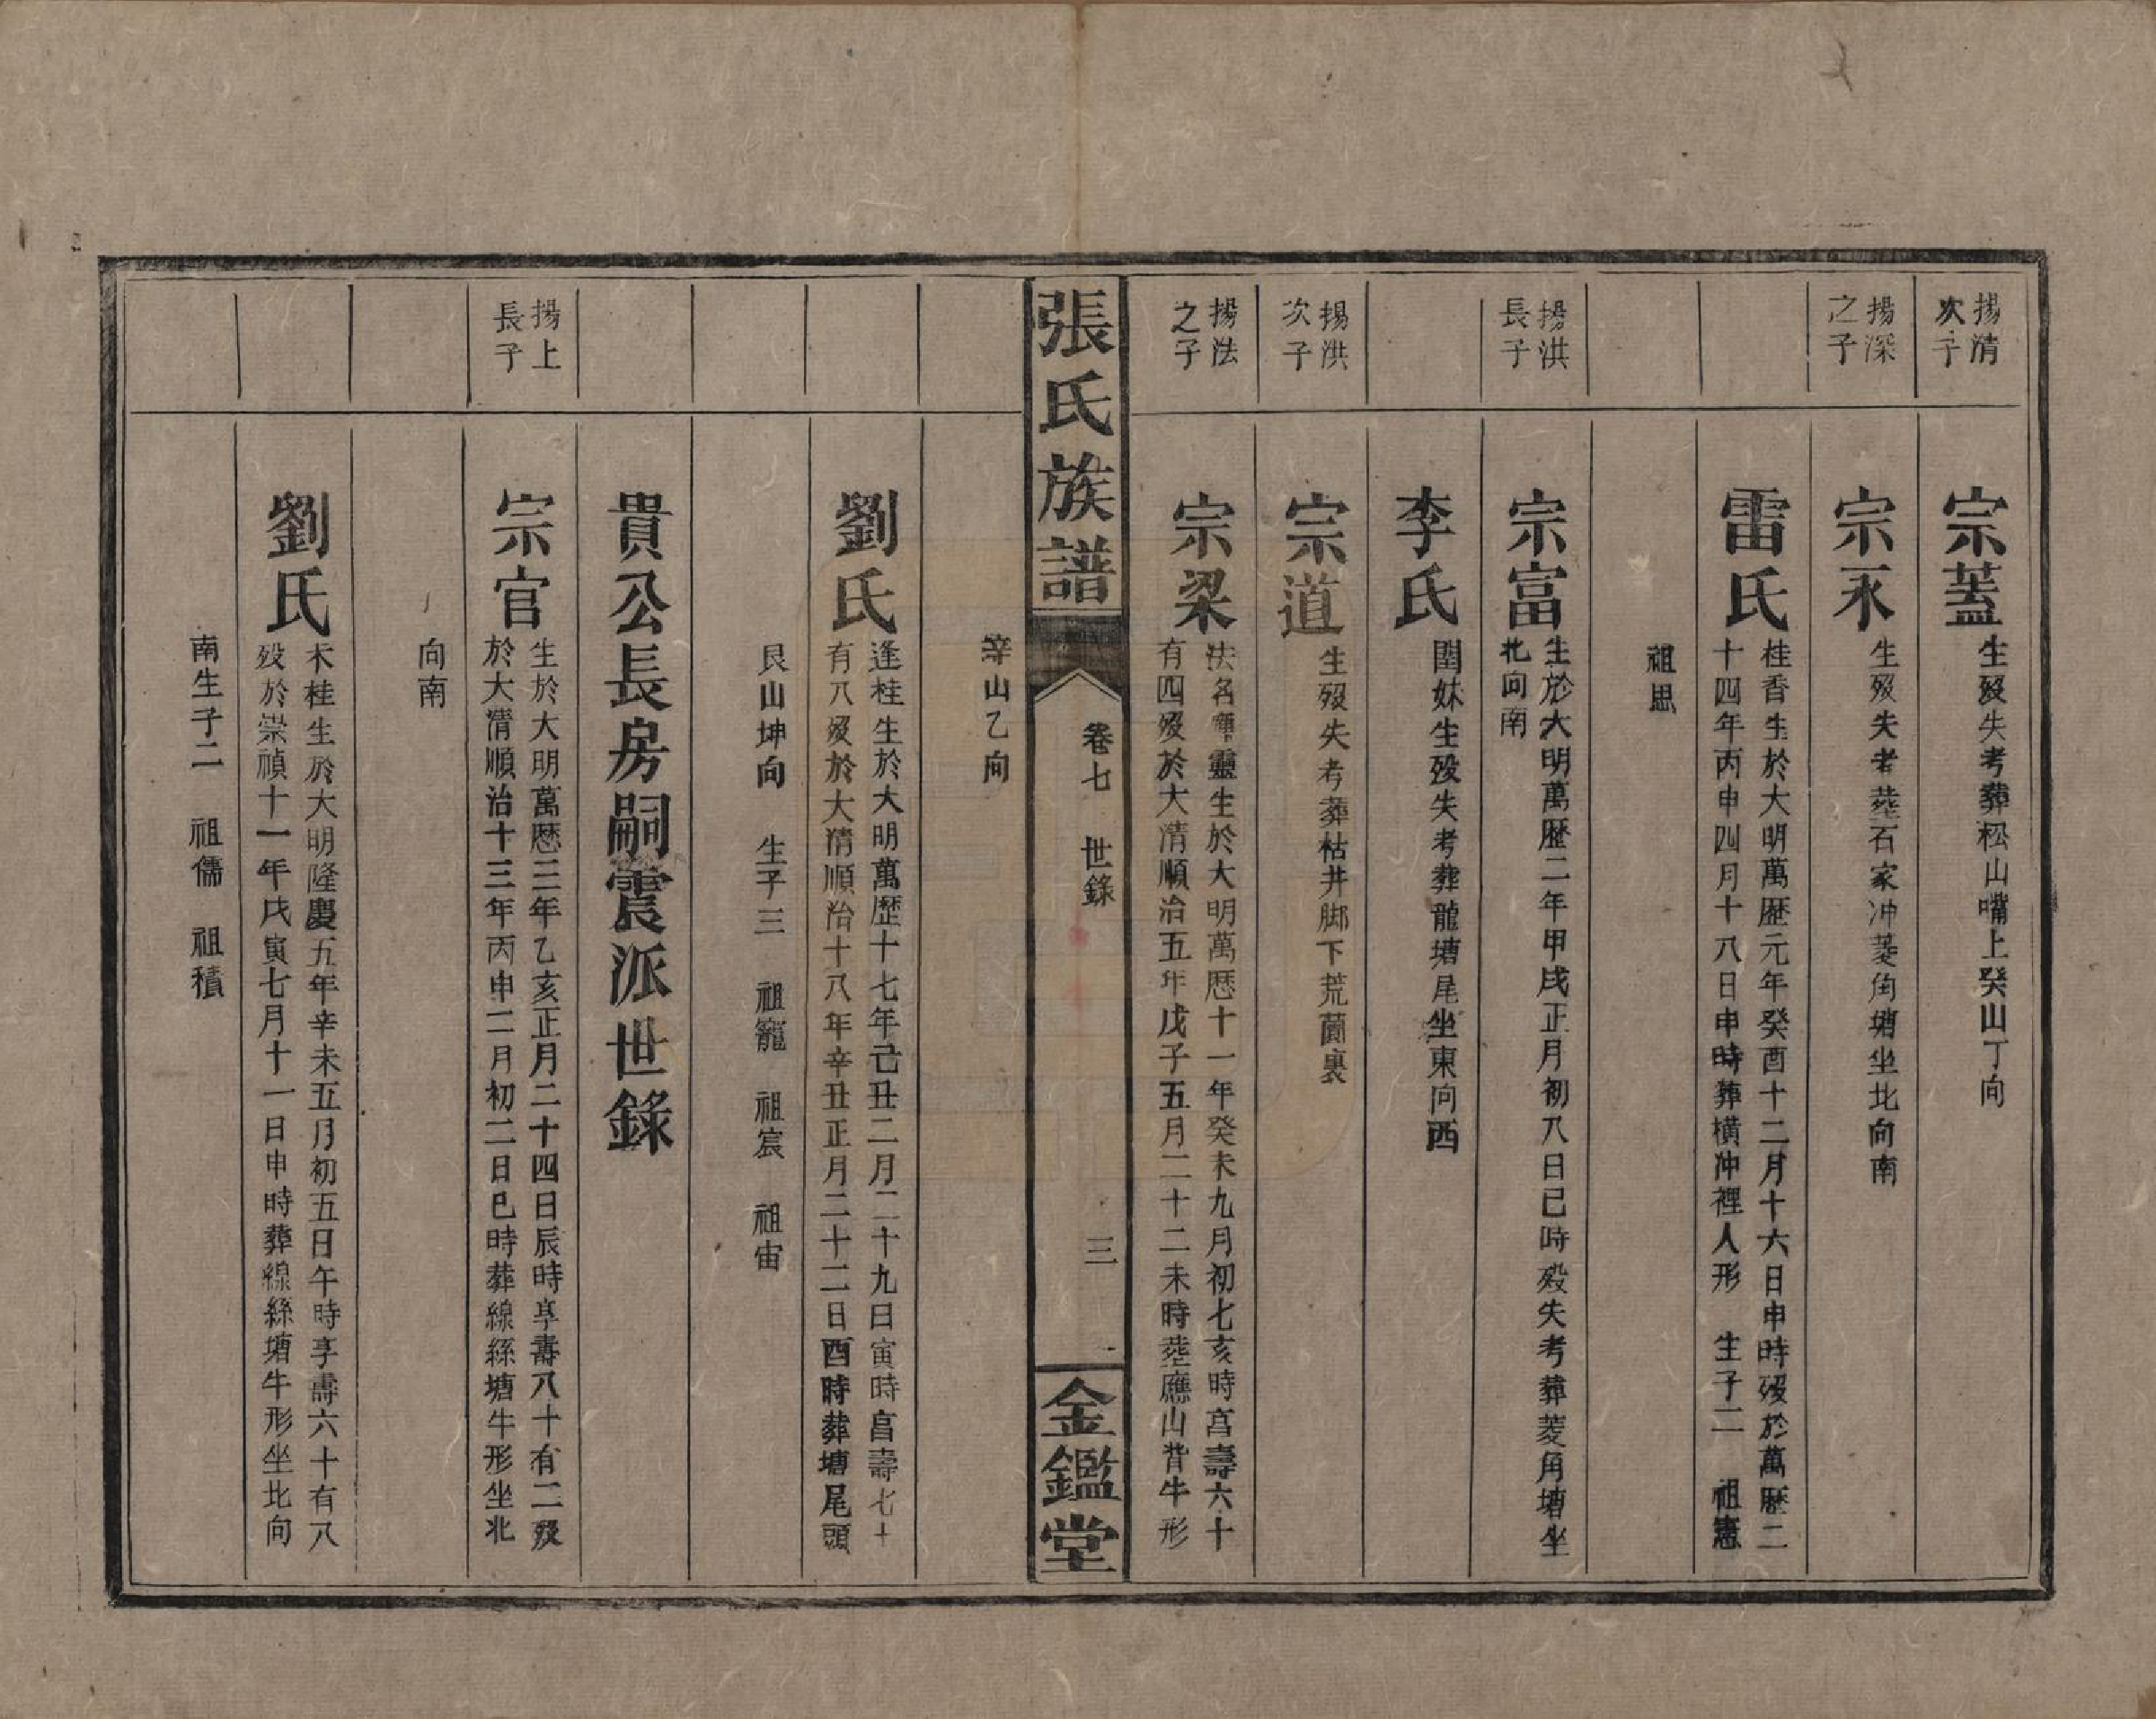 揚清次子
宗蓋
生歿失考葬松山嘴上癸山丁向
揚深之子
宗永
生歿失考葬石家冲菱角塘坐北向南
雷氏
桂香生於大明萬歷元年癸酉十二月十六日申時歿於萬歷二
十四年丙申四月十八日申時葬橫冲裡人形 生子二 祖憲
祖思
揚洪長子
宗富
生於大明萬歷二年甲戌正月初八日巳時歿失考葬菱角塘坐
北向南
李氏
閏妹生歿失考葬龍塘尾坐東向西
揚洪次子
宗道
生歿失考葬枯井脚下荒薗裏
揚法之子
宗梁
法名 靈生於大明萬歷十一年癸未九月初七亥時亯壽六十
有四歿於大清順治五年戊子五月二十二未時葬應山背牛形
辛山乙向
張氏族譜
卷七 世錄
三
金鑑堂
劉氏
逢桂生於大明萬歷十七年己丑二月二十九日寅時亯壽七十
有八歿於大清順治十八年辛丑正月二十二日酉時葬塘尾頭
艮山坤向 生子三 祖寵 祖宸 祖宙
貴公長房嗣震派世錄
揚上長子
宗官
生於大明萬歷三年乙亥正月二十四日辰時享壽八十有二歿
於大清順治十三年丙申二月初二日巳時葬線絲塘牛形坐北
向南
劉氏
木桂生於大明隆慶五年辛未五月初五日午時享壽六十有八
歿於崇禎十一年戊寅七月十一日申時葬線絲塘牛形坐北向
南生子二 祖儒 祖積